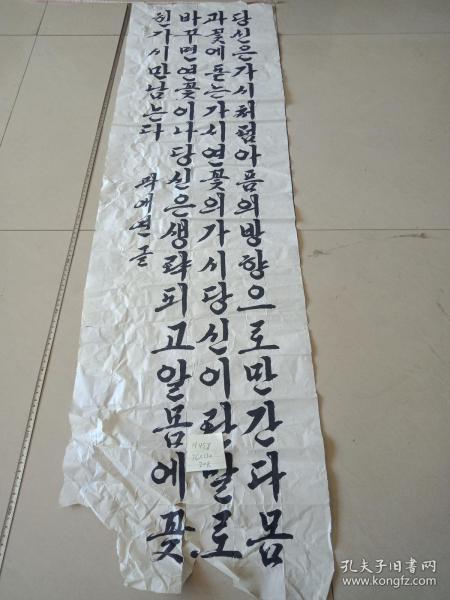 당신은가시처럼아픔의방향으로만간다몸
과꽃에돋는가시연꽃의가시당신이란말로
바꾸면연꽃이나당신은생략피고알몸에꽂
힌가시만남는다
글
孔夫子旧书网
www.kongfz.com